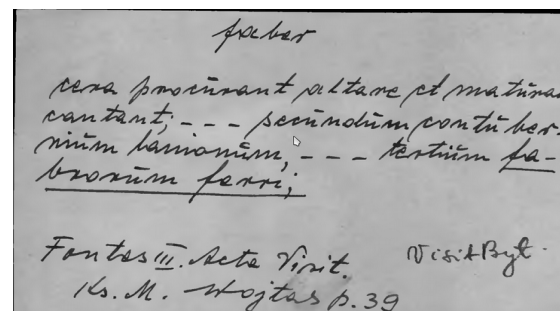 faber
cera procūrant altare et matūras
cantant; - - - secūndūm contūber-
niūm lanionūm, - - - tertiūm fa-
brorūm ferri;
Fontes III. Acta Visit. VisitBył.
Ks. M. Wojtas p. 39